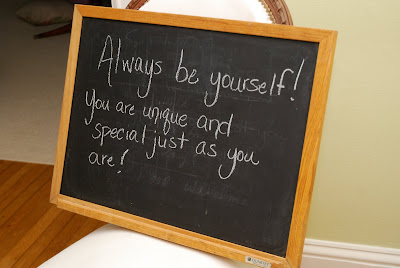 Always be yourself!
You are unique and
special just as you
are!